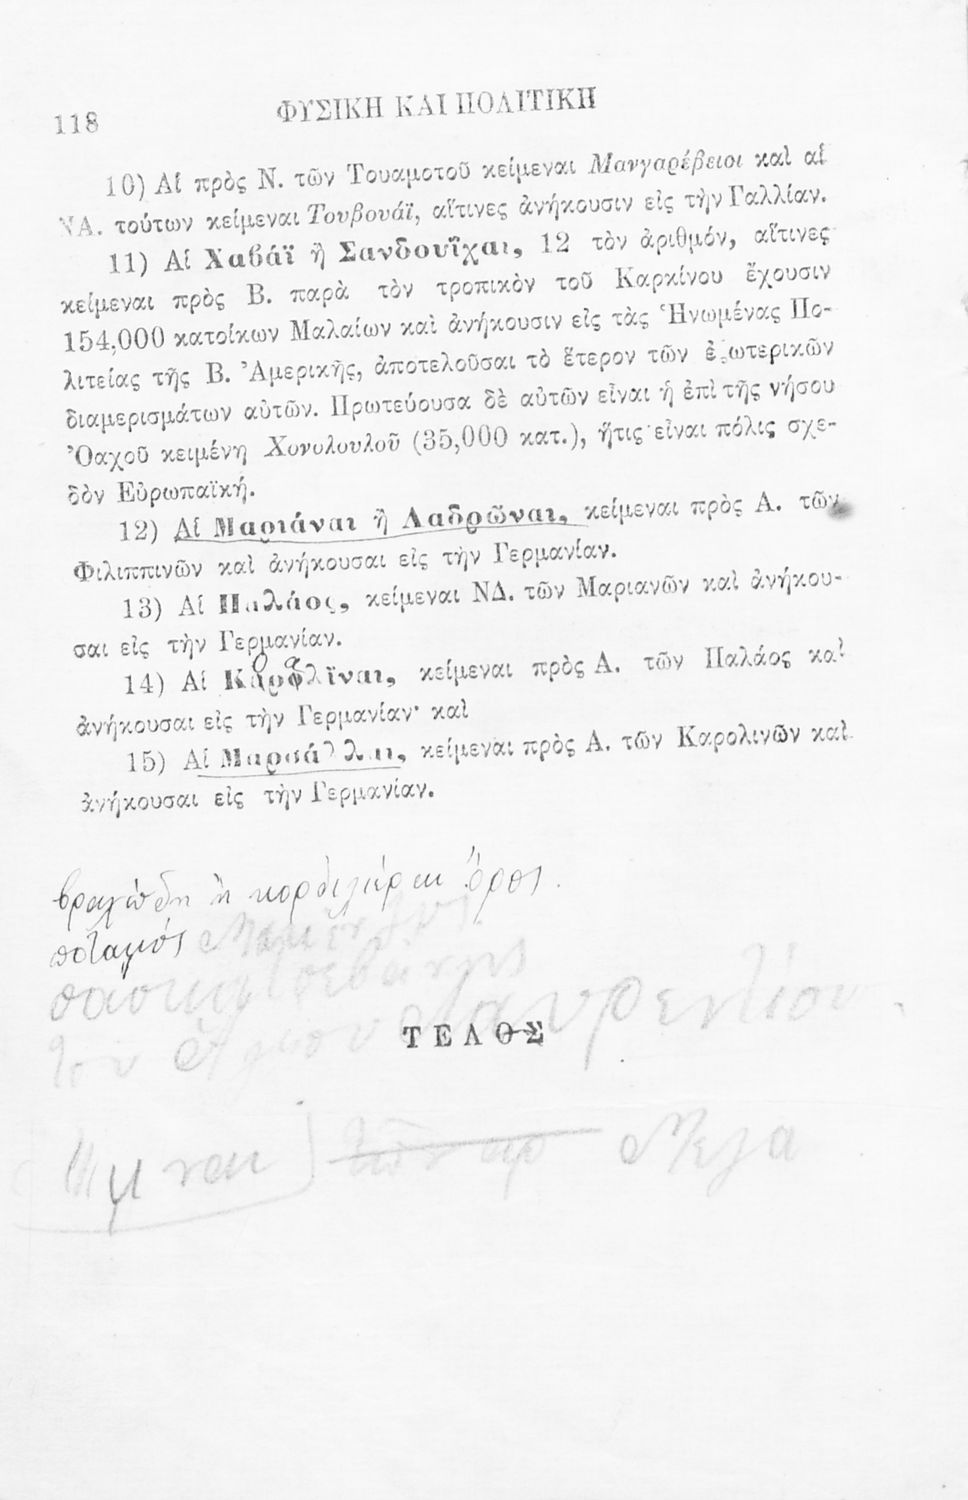 118
ΦΥΣΙΚΗ ΚΑΙ ΠΟΛΙΤΙΚΗ
10) Αἱ πρὸς Ν. τῶν Τουαμοτοῦ κείμεναι Μανγαρέβειοι καὶ αἱ
ΝΑ. τούτων κείμεναι Τουβουάϊ, αἵτινες ἀνήκουσιν εἰς τὴν Γαλλίαν.
11) Αἱ Χαβάϊ ἢ Σανδουῗχαι, 12 τὸν ἀριθμόν, αἵτινες
κείμεναι πρὸς Β. παρὰ τὸν τροπικὸν τοῦ Καρκίνου ἔχουσιν
154,000 κατοίκων Μαλαίων καὶ ἀνήκουσιν εἰς τὰς Ἡνωμένας Πο-
λιτείας τῆς Β. Ἀμερικῆς, ἀποτελοῦσαι τὸ ἕτερον τῶν ἐξωτερικῶν
διαμερισμάτων αὐτῶν. Πρωτεύουσα δὲ αὐτῶν εἶναι ἡ ἐπὶ τῆς νήσου
Ὀαχοῦ κειμένη Χονυλουλοῦ (35,000 κατ.), ἥτις εἶναι πόλις σχε-
δὸν Εὐρωπαϊκή.
12) Αἱ Μαριάναι ἢ Λαδρῶναι, κείμεναι πρὸς Α. τῶν
Φιλιππινῶν καὶ ἀνήκουσαι εἰς τὴν Γερμανίαν.
13) Αἱ Παλάος, κείμεναι ΝΔ. τῶν Μαριανῶν καὶ ἀνήκου-
σαι εἰς τὴν Γερμανίαν.
14) Αἱ Καρολῖναι, κείμεναι πρὸς Α. τῶν Παλάος καὶ
ἀνήκουσαι εἰς τὴν Γερμανίαν· καὶ
15) Αἱ Μαρσάλλαι, κείμεναι πρὸς Α. τῶν Καρολινῶν καὶ
ἀνήκουσαι εἰς τὴν Γερμανίαν.
βραχώδη ἢ κορδιλιέραι ὄρος
ποταμὸς
ΤΕΛΟΣ
Μεγα